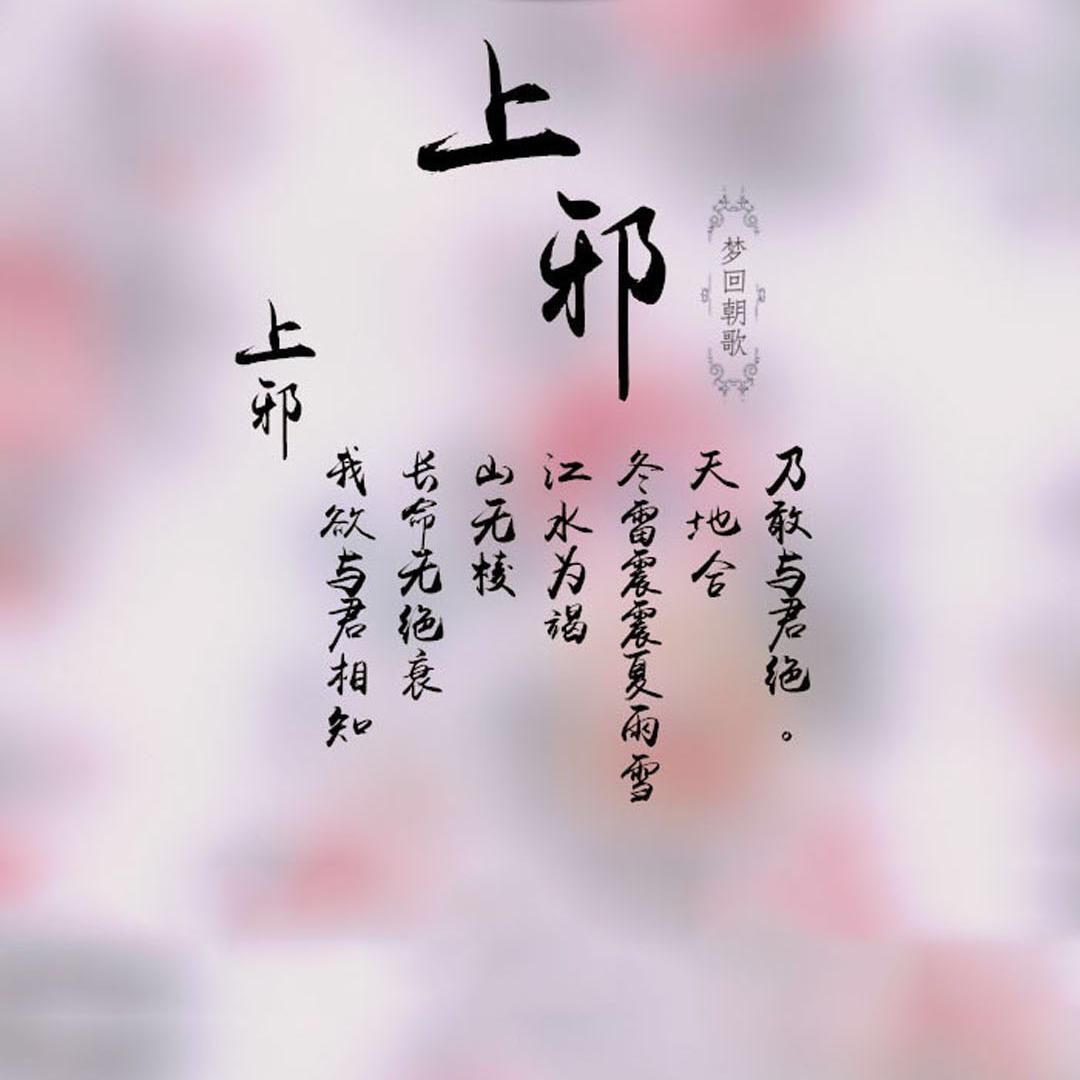 上邪
梦回朝歌
上邪
我欲与君相知
长命无绝衰
山无棱
江水为竭
冬雷震震夏雨雪
天地合
乃敢与君绝。